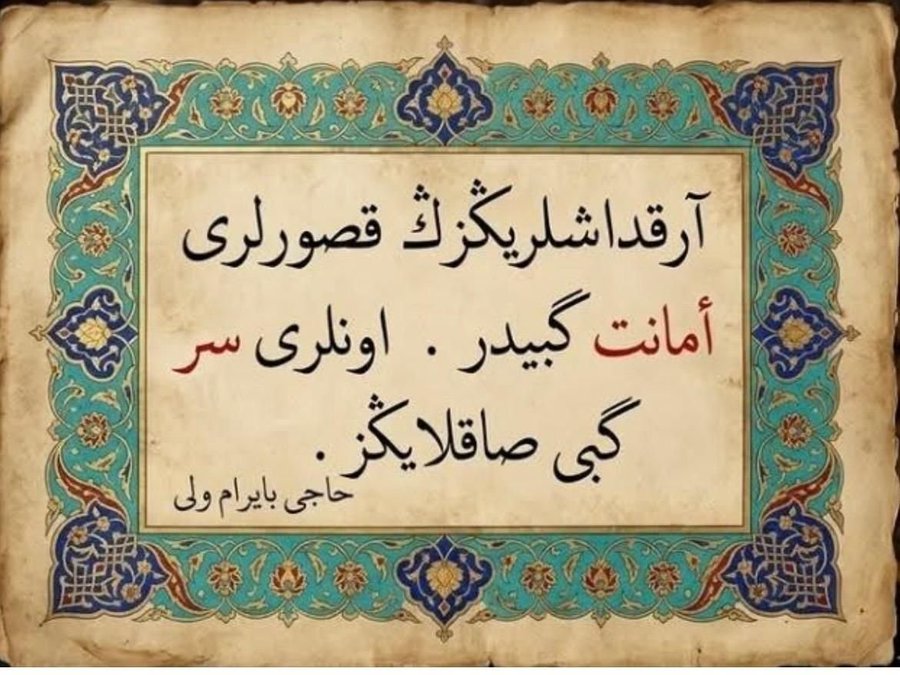 آرقداشلریڭزڭ قصورلری
أمانت گبیدر . اونلری سر
گبی صاقلایڭز .
حاجی بایرام ولی